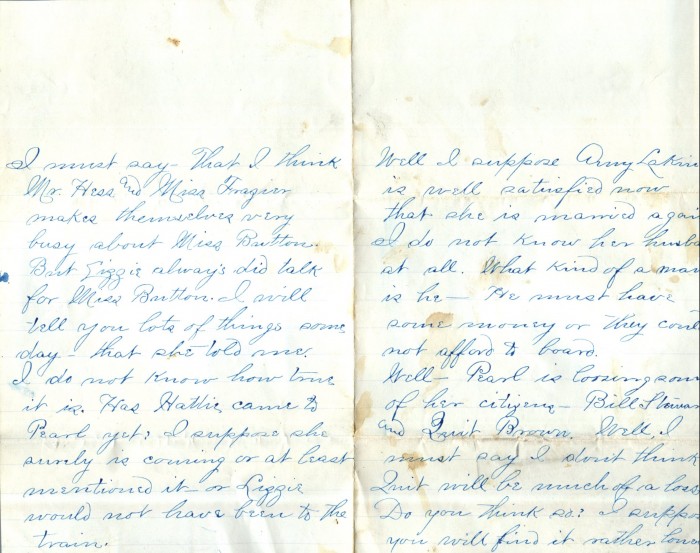 I must say - That I think
Mr. Hess and Miss Frazier
makes themselves very
busy about Miss Britton.
But Lizzie always did talk
for Miss Britton. I will
tell you lots of things some
day - that she told me.
I do not know how true
it is. Has Hattie came to
Pearl yet? I suppose she
surely is coming or at least
mentioned it - or Lizzie
would not have been to the
train.
Well I suppose Amy Lakin
is well satusfied now
that she is married again
I do not know her husba
at all. What kind of a man
is he - He must have
some money or they could
not afford to board.
Well - Pearl is loosing som
of her citizens - Bill Stewar
and Quit Brown. Well, I
must say I don't think
Quit will be much of a loss
Do you think so? I suppo
you will find it rather lone